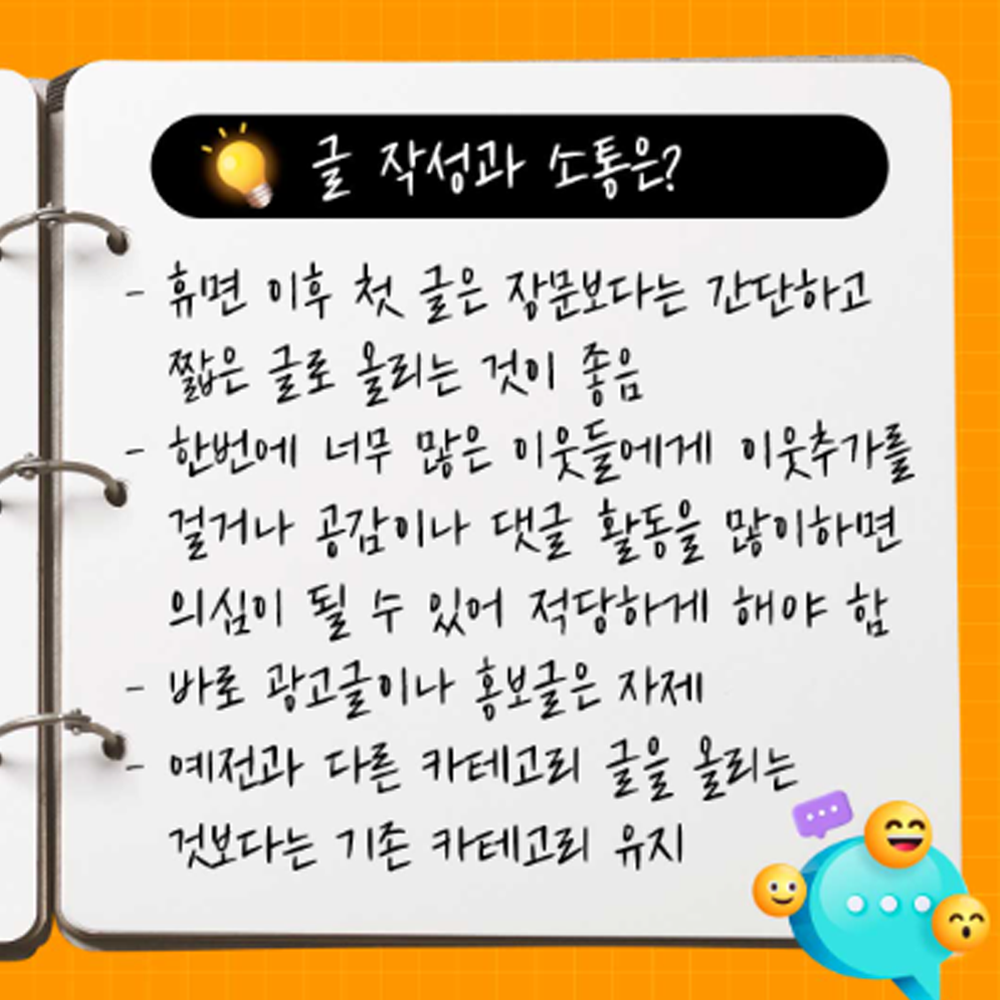 글 작성과 소통은?
- 휴면 이후 첫 글은 장문보다는 간단하고
짧은 글로 올리는 것이 좋음
- 한번에 너무 많은 이웃들에게 이웃추가를
걸거나 공감이나 댓글 활동을 많이하면
의심이 될 수 있어 적당하게 해야 함
- 바로 광고글이나 홍보글은 자제
- 예전과 다른 카테고리 글을 올리는
것보다는 기존 카테고리 유지